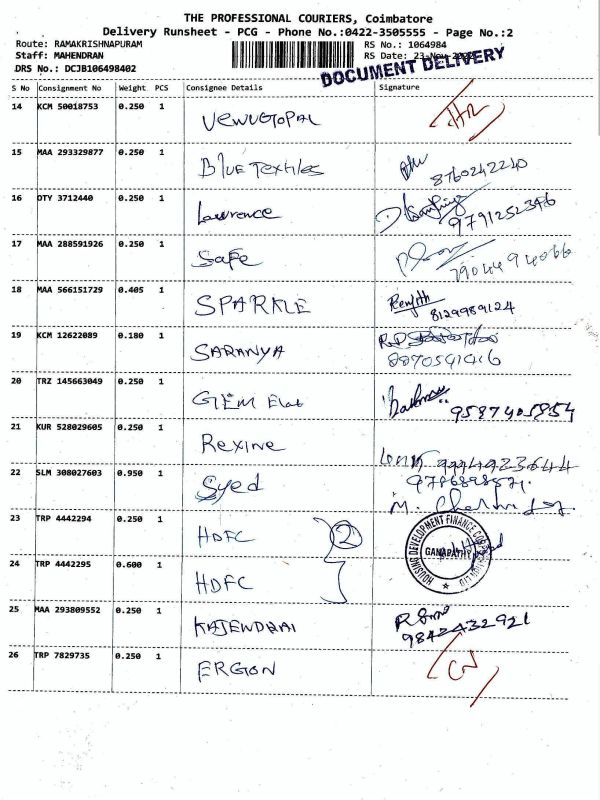 THE PROFESSIONAL COURIERS, Coimbatore
Delivery Runsheet - PCG - Phone No.:0422-3505555 - Page No.:2
Route: RAMAKRISHNAPURAM RS No.: 1064984
Staff: MAHENDRAN RS Date: 23-Nov
DRS No.: DCJB106498402
DOCUMENT DELIVERY
S No Consignment No Weight PCS Consignee Details Signature
14 KCM 50018753 0.250 1 VENUGOPAL
15 MAA 293329877 0.250 1 BLUE Textiles 8760242240
16 OTY 3712440 0.250 1 Lawrence 9791252396
17 MAA 288591926 0.250 1 Safe 7904494066
18 MAA 566151729 0.405 1 SPARKLE Renjith 8129989124
19 KCM 12622089 0.180 1 SARANYA 8870591416
20 TRZ 145663049 0.250 1 GEM 9587405854
21 KUR 528029605 0.250 1 Rexine 9994923644
22 SLM 308027603 0.950 1 Syed
23 TRP 4442294 0.250 1 HDFC 2
HOUSING DEVELOPMENT FINANCE
GANAPATHY
24 TRP 4442295 0.600 1 HDFC
25 MAA 293809552 0.250 1 9842432921
26 TRP 7829735 0.250 1 ERGION